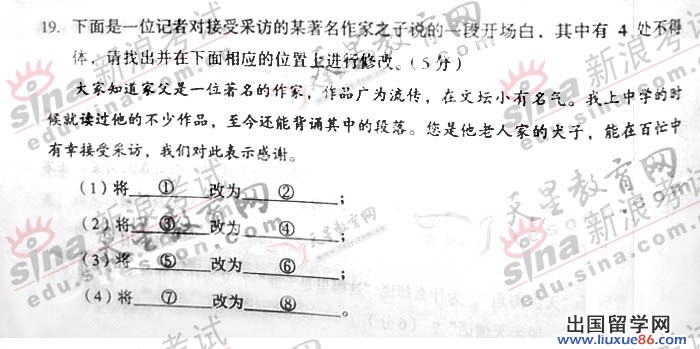 19. 下面是一位记者对接受采访的某著名作家之子说的一段开场白，其中有 4 处不得
体，请找出并在下面相应的位置上进行修改。(5分)
大家知道家父是一位著名的作家，作品广为流传，在文坛小有名气。我上中学的时
候就读过他的不少作品，至今还能背诵其中的段落。您是他老人家的犬子，能在百忙中
有幸接受采访，我们对此表示感谢。
(1)将 ① 改为 ② ；
(2)将 ③ 改为 ④ ；
(3)将 ⑤ 改为 ⑥ ；
(4)将 ⑦ 改为 ⑧ 。
sina 新浪考试
edu.sina.com.cn
天星教育网
出国留学网
www.liuxue86.com